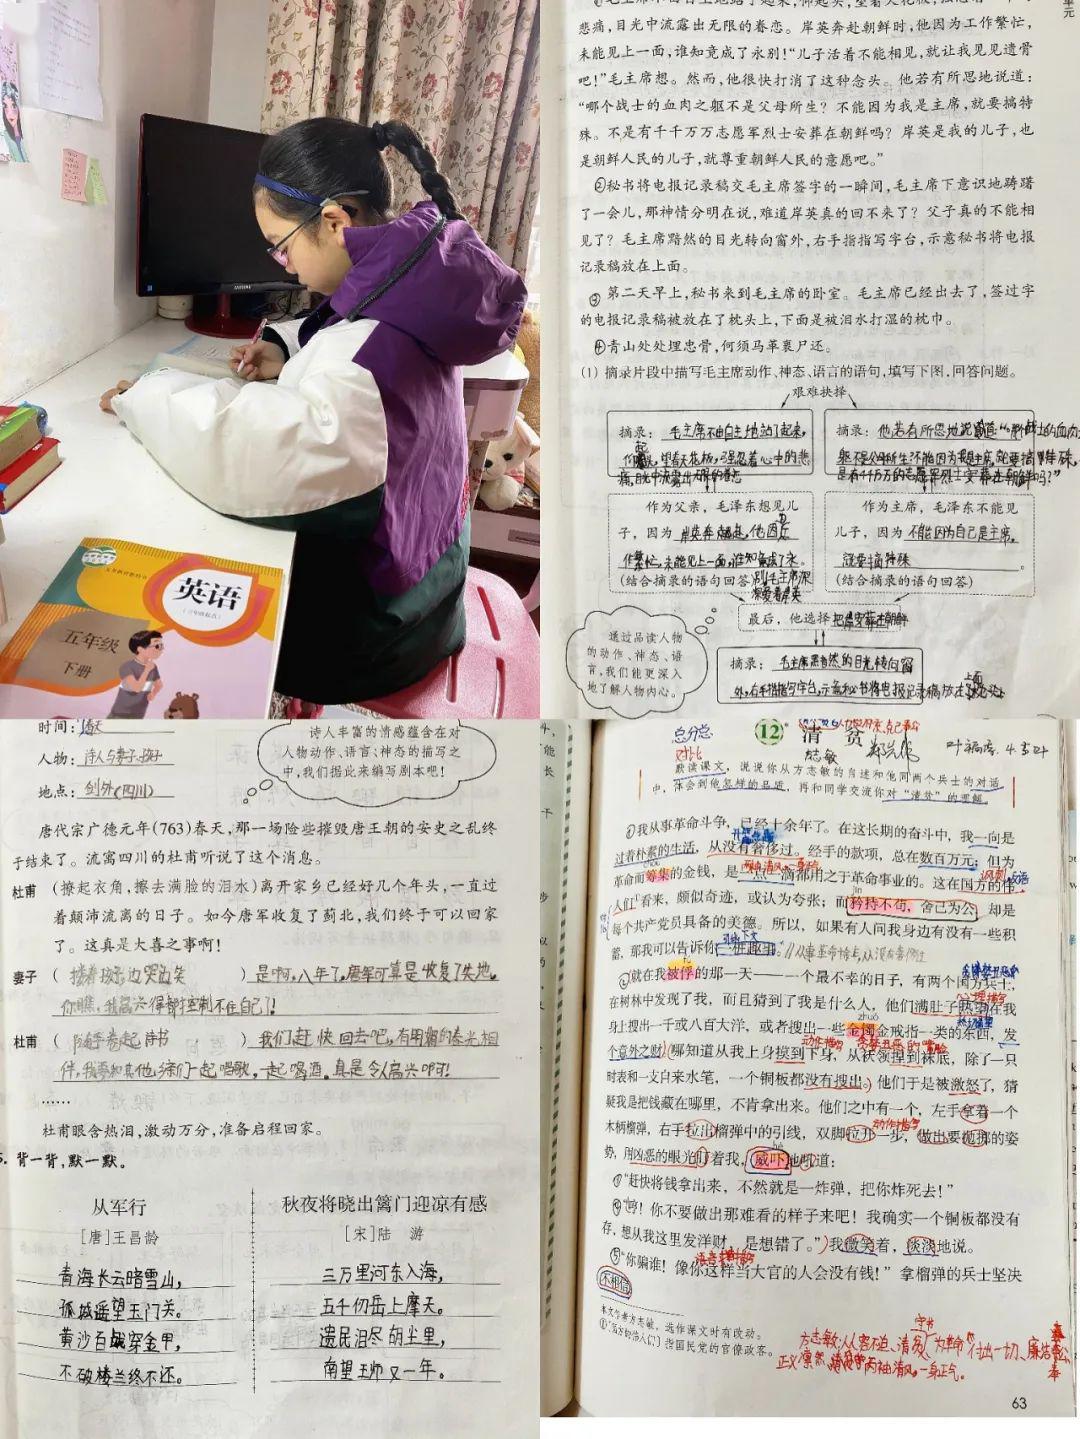 义务教育教科书
英语
(三年级起点)
五年级
下册
悲痛,目光中流露出无限的眷恋。岸英奔赴朝鲜时,他因为工作繁忙,
未能见上一面,谁知竟成了永别!“儿子活着不能相见,就让我见见遗骨
吧!”毛主席想。然而,他很快打消了这种念头。他若有所思地说道:
“哪个战士的血肉之躯不是父母所生?不能因为我是主席,就要搞特
殊。不是有千千万万志愿军烈士安葬在朝鲜吗?岸英是我的儿子,也
是朝鲜人民的儿子,就尊重朝鲜人民的意愿吧。”
②秘书将电报记录稿交毛主席签字的一瞬间,毛主席下意识地踌躇
了一会儿,那神情分明在说,难道岸英真的回不来了?父子真的不能相
见了?毛主席黯然的目光转向窗外,右手指指写字台,示意秘书将电报
记录稿放在上面。
③第二天早上,秘书来到毛主席的卧室。毛主席已经出去了,签过字
的电报记录稿被放在了枕头上,下面是被泪水打湿的枕巾。
④青山处处埋忠骨,何须马革裹尸还。
(1)摘录片段中描写毛主席动作、神态、语言的语句,填写下图,回答问题。
艰难抉择
摘录:毛主席不由自主地站了起来,
仰起头,望着天花板,强忍着心中的悲
痛,目光中流露出无限的眷恋
摘录:他若有所思地说道:“哪个战士的血肉之
躯不是父母所生?不能因为我是主席,就要搞特殊,
是有千千万万的志愿军烈士安葬在朝鲜吗?”
作为父亲,毛泽东想见儿
子,因为岸英奔赴朝鲜,他因为
作繁忙,未能见上一面,谁知竟成了永
别,毛主席深
(结合摘录的语句回答)
深爱着岸英
作为主席,毛泽东不能见
儿子,因为不能因为自己是主席,
就要搞特殊。
(结合摘录的语句回答)
最后,他选择把岸英葬在朝鲜
通过品读人物
的动作、神态、语
言,我们能更深入
地了解人物内心。
摘录:毛主席黯然的目光转向窗
外,右手指指写字台,示意秘书将电报记录稿放在上面
时间:春天
人物:诗人与妻子、孩子
地点:剑外(四川)
诗人丰富的情感蕴含在对
人物动作、语言、神态的描写之
中,我们据此来编写剧本吧!
唐代宗广德元年(763)春天,那一场险些摧毁唐王朝的安史之乱终
于结束了。流寓四川的杜甫听说了这个消息。
杜甫 (撩起衣角,擦去满脸的泪水)离开家乡已经好几个年头,一直过
着颠沛流离的日子。如今唐军收复了蓟北,我们终于可以回家
了。这真是大喜之事啊!
妻子 (搂着孩子,边哭边笑)是啊,八年了,唐军可算是收复了失地,
你瞧,我高兴得都控制不住自己了!
杜甫 (随手卷起诗书)我们赶快回去吧,有用媚的春光相
伴,我要和其他亲们一起唱歌,一起喝酒,真是令人高兴啊!
……
杜甫眼含热泪,激动万分,准备启程回家。
背一背,默一默。
从军行
[唐]王昌龄
青海长云暗雪山,
孤城遥望玉门关。
黄沙百战穿金甲,
不破楼兰终不还。
秋夜将晓出篱门迎凉有感
[宋]陆 游
三万里河东入海,
五千仞岳上摩天。
遗民泪尽胡尘里,
南望王师又一年。
总分总
对比
12 清 贫
方志敏
默读课文,说说你从方志敏的自述和他同两个兵士的对话
中,体会到他怎样的品质,再和同学交流你对“清贫”的理解。
①我从事革命斗争,已经十余年了。在这长期的奋斗中,我一向是
过着朴素的生活,从没有奢侈过。经手的款项,总在数百万元;但为
革命而筹集的金钱,是一点一滴都用之于革命事业的。这在国方的伟
人们看来,颇似奇迹,或认为夸张;而矜持不苟,舍己为公,却是
每个共产党员具备的美德。所以,如果有人问我身边有没有一些积
蓄,那我可以告诉你一桩趣事:
②就在我被俘的那一天——一个最不幸的日子,有两个国方兵士,
在树林中发现了我,而且猜到了我是什么人,他们满肚子热望在我
zhuó
身上搜出一千或八百大洋,或者搜出一些金镯金戒指一类的东西,发
个意外之财。哪知道从我上身摸到下身,从袄领捏到袜底,除了一只
时表和一支自来水笔,一个铜板都没有搜出。他们于是被激怒了,猜
疑我是把钱藏在哪里,不肯拿出来。他们之中有一个,左手拿着一个
动作描写
木柄榴弹,右手拉出榴弹中的引线,双脚拉开一步,做出要抛掷的姿
势,用凶恶的眼光盯着我,威吓地吼道:
③“赶快将钱拿出来,不然就是一炸弹,把你炸死去!”
④“哼!你不要做出那难看的样子来吧!我确实一个铜板都没有
存,想从我这里发洋财,是想错了。”我微笑着,淡淡地说。
语言描写
⑤“你骗谁!像你这样当大官的人会没有钱!”拿榴弹的兵士坚决
不相信
本文作者方志敏,选作课文时有改动。
指国民党的官僚政客。
方志敏:从容不迫、清贫、为革命付出一切、廉洁奉公
正义凛然、两袖清风、一身正气。
63